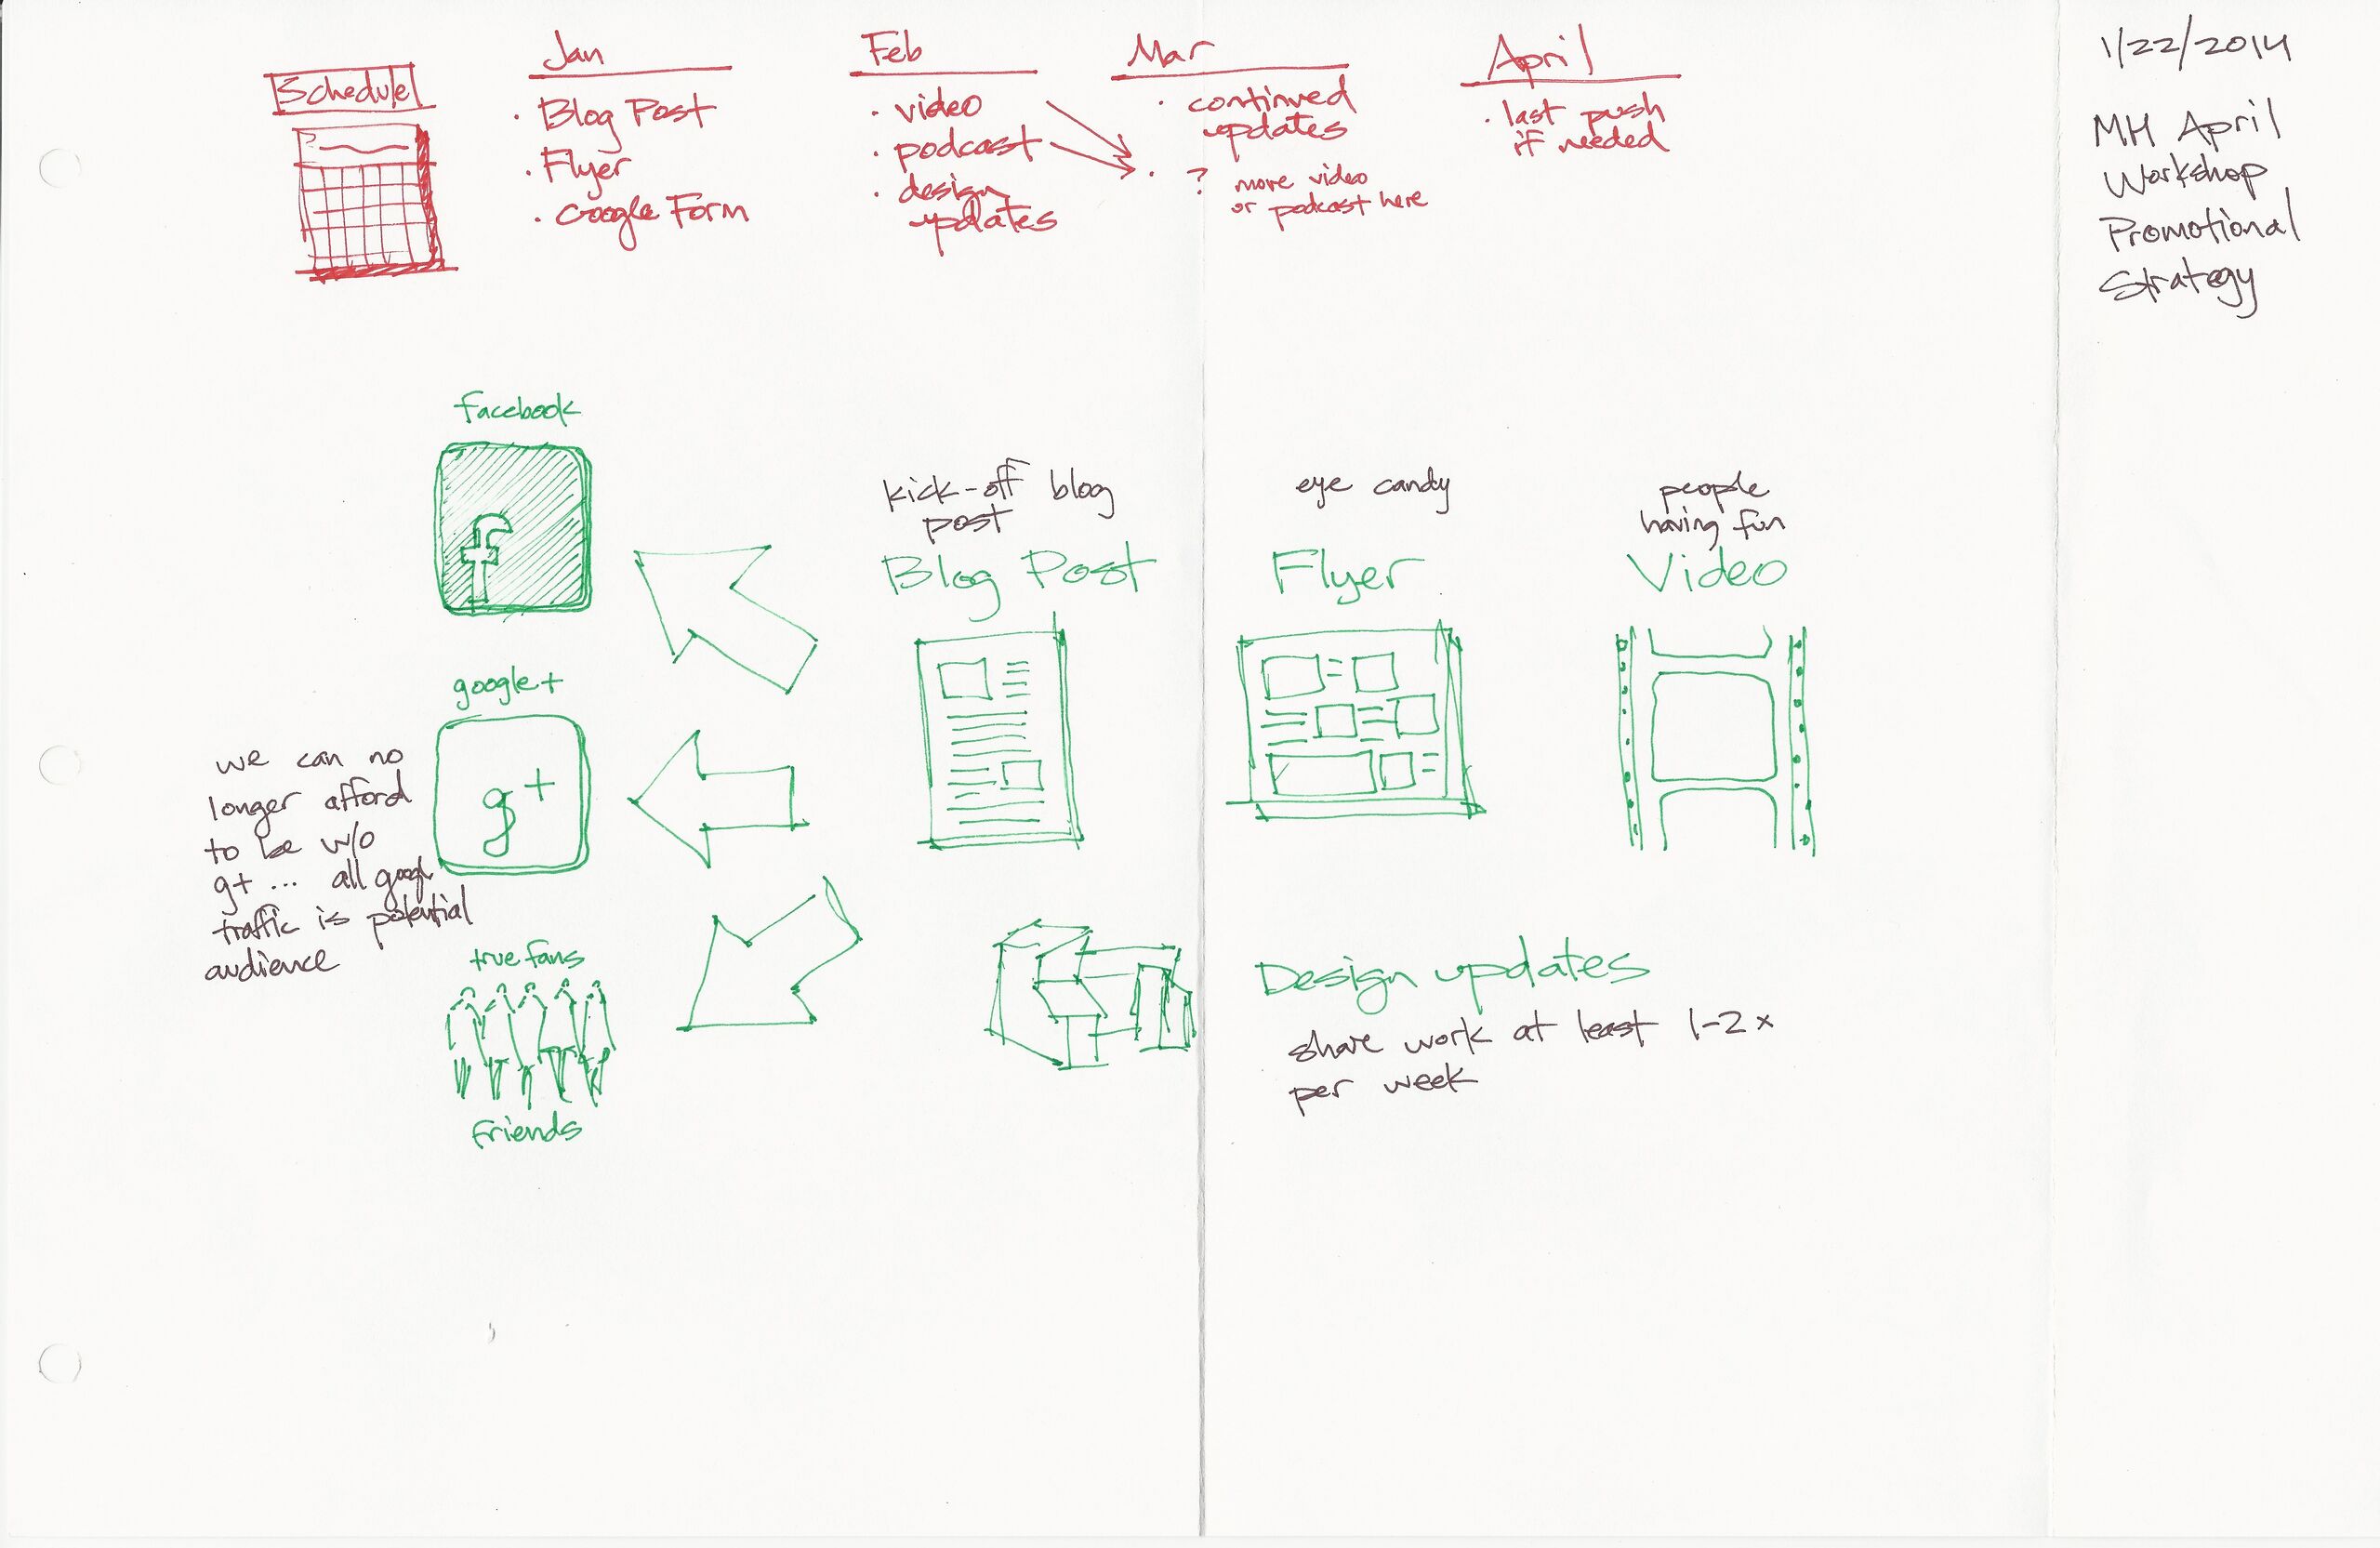 1/22/2014
MH April
Workshop
Promotional
Strategy
Schedule
Jan
· Blog Post
· Flyer
· Google Form
Feb
· video
· podcast
· design
updates
Mar
· continued
updates
· ? more video
or podcast here
April
· last push
if needed
facebook
f
google+
g+
we can no
longer afford
to be w/o
g+ ... all googl
traffic is potential
audience
true fans
friends
kick-off blog
post
Blog Post
eye candy
Flyer
people
having fun
Video
Design updates
share work at least 1-2x
per week